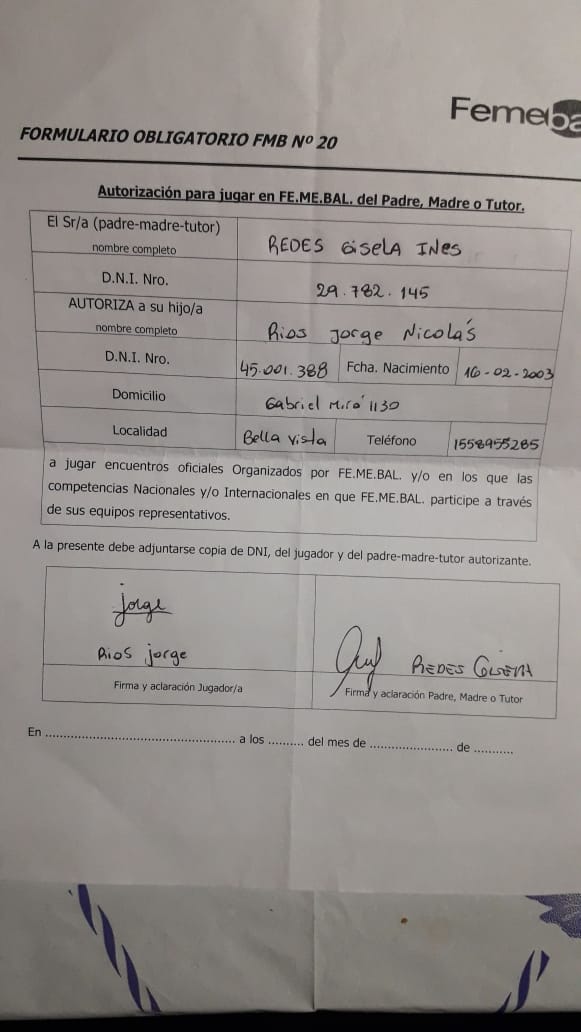 Femeba
FORMULARIO OBLIGATORIO FMB Nº 20
Autorización para jugar en FE.ME.BAL. del Padre, Madre o Tutor.
El Sr/a (padre-madre-tutor)
nombre completo
REDES GISELA INES
D.N.I. Nro.
29.782.145
AUTORIZA a su hijo/a
nombre completo
Rios Jorge Nicolás
D.N.I. Nro. 45.001.388 Fcha. Nacimiento 16-02-2003
Domicilio Gabriel Miró 1130
Localidad Bella Vista Teléfono 1558955285
a jugar encuentros oficiales Organizados por FE.ME.BAL. y/o en los que las
competencias Nacionales y/o Internacionales en que FE.ME.BAL. participe a través
de sus equipos representativos.
A la presente debe adjuntarse copia de DNI, del jugador y del padre-madre-tutor autorizante.
Jorge
Rios Jorge
REDES GISELA
Firma y aclaración Jugador/a
Firma y aclaración Padre, Madre o Tutor
En .................................................. a los .......... del mes de ...................... de ...........